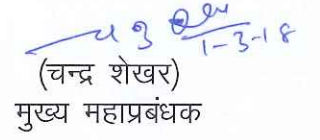 1-3-18
(चन्द्र शेखर)
मुख्य महाप्रबंधक